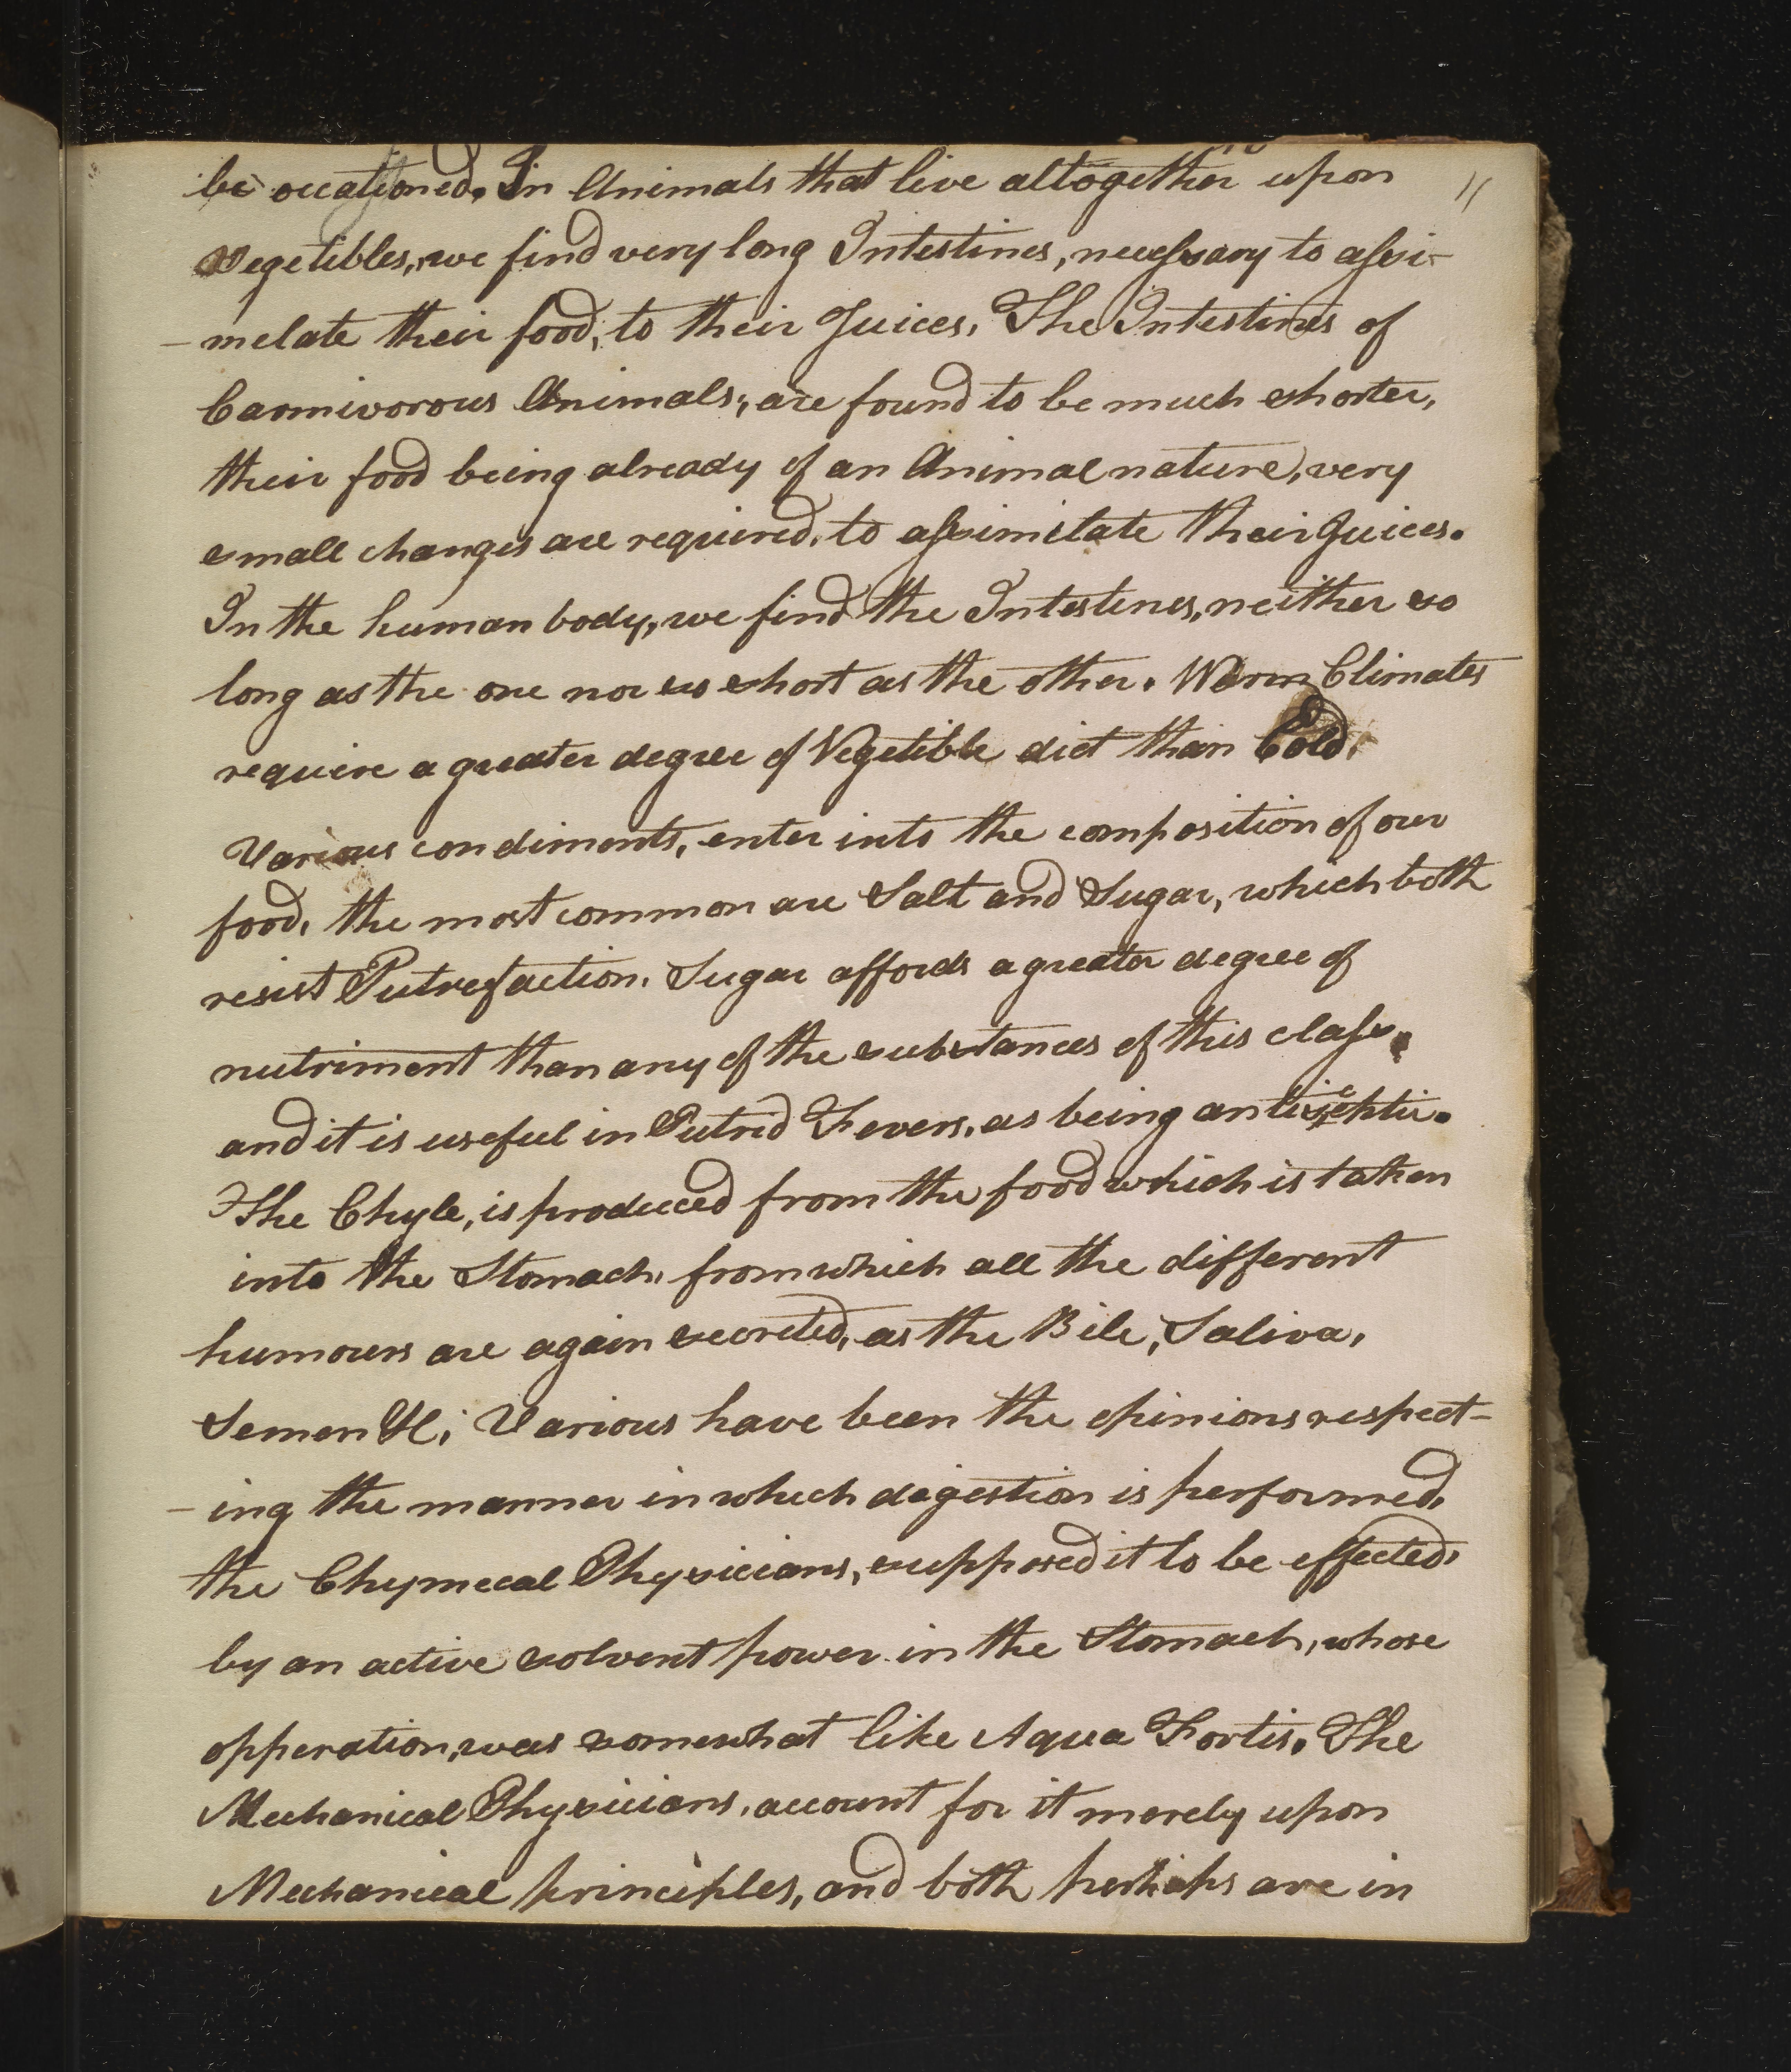 be occationed. In Animals that live altogether upon 11
Vegetibles, we find very long Intestines, necessary to assi-
-melate their food, to their Juices. The Intestines of
Carnivorous Animals, are found to be much shorter,
their food being already of an Animal nature, very
small changes are required, to assimilate their Juices.
In the human body, we find the Intestines, neither so
long as the one nor so short as the other. Warm Climates
require a greater degree of Vegetible diet than Cold.
Various condiments, enter into the composition of our
food, the most common are Salt and Sugar, which both
resist Putrefaction. Sugar affords a greater degree of
nutriment than any of the substances of this class,
and it is useful in Putrid Fevers, as being antiseptic.
The Chyle, is produced from the food which is taken
into the Stomach, from which all the different
humours are again secreted, as the Bile, Saliva,
Semen &c. Various have been the opinions respect-
-ing the manner in which digestion is performed,
the Chymecal Physicians, supposed it to be effected,
by an active solvent power in the Stomach, whose
opperation, was somewhat like Aqua Fortis. The
Mechanical Physicians, account for it merely upon
Mechanical principles, and both perhaps are in